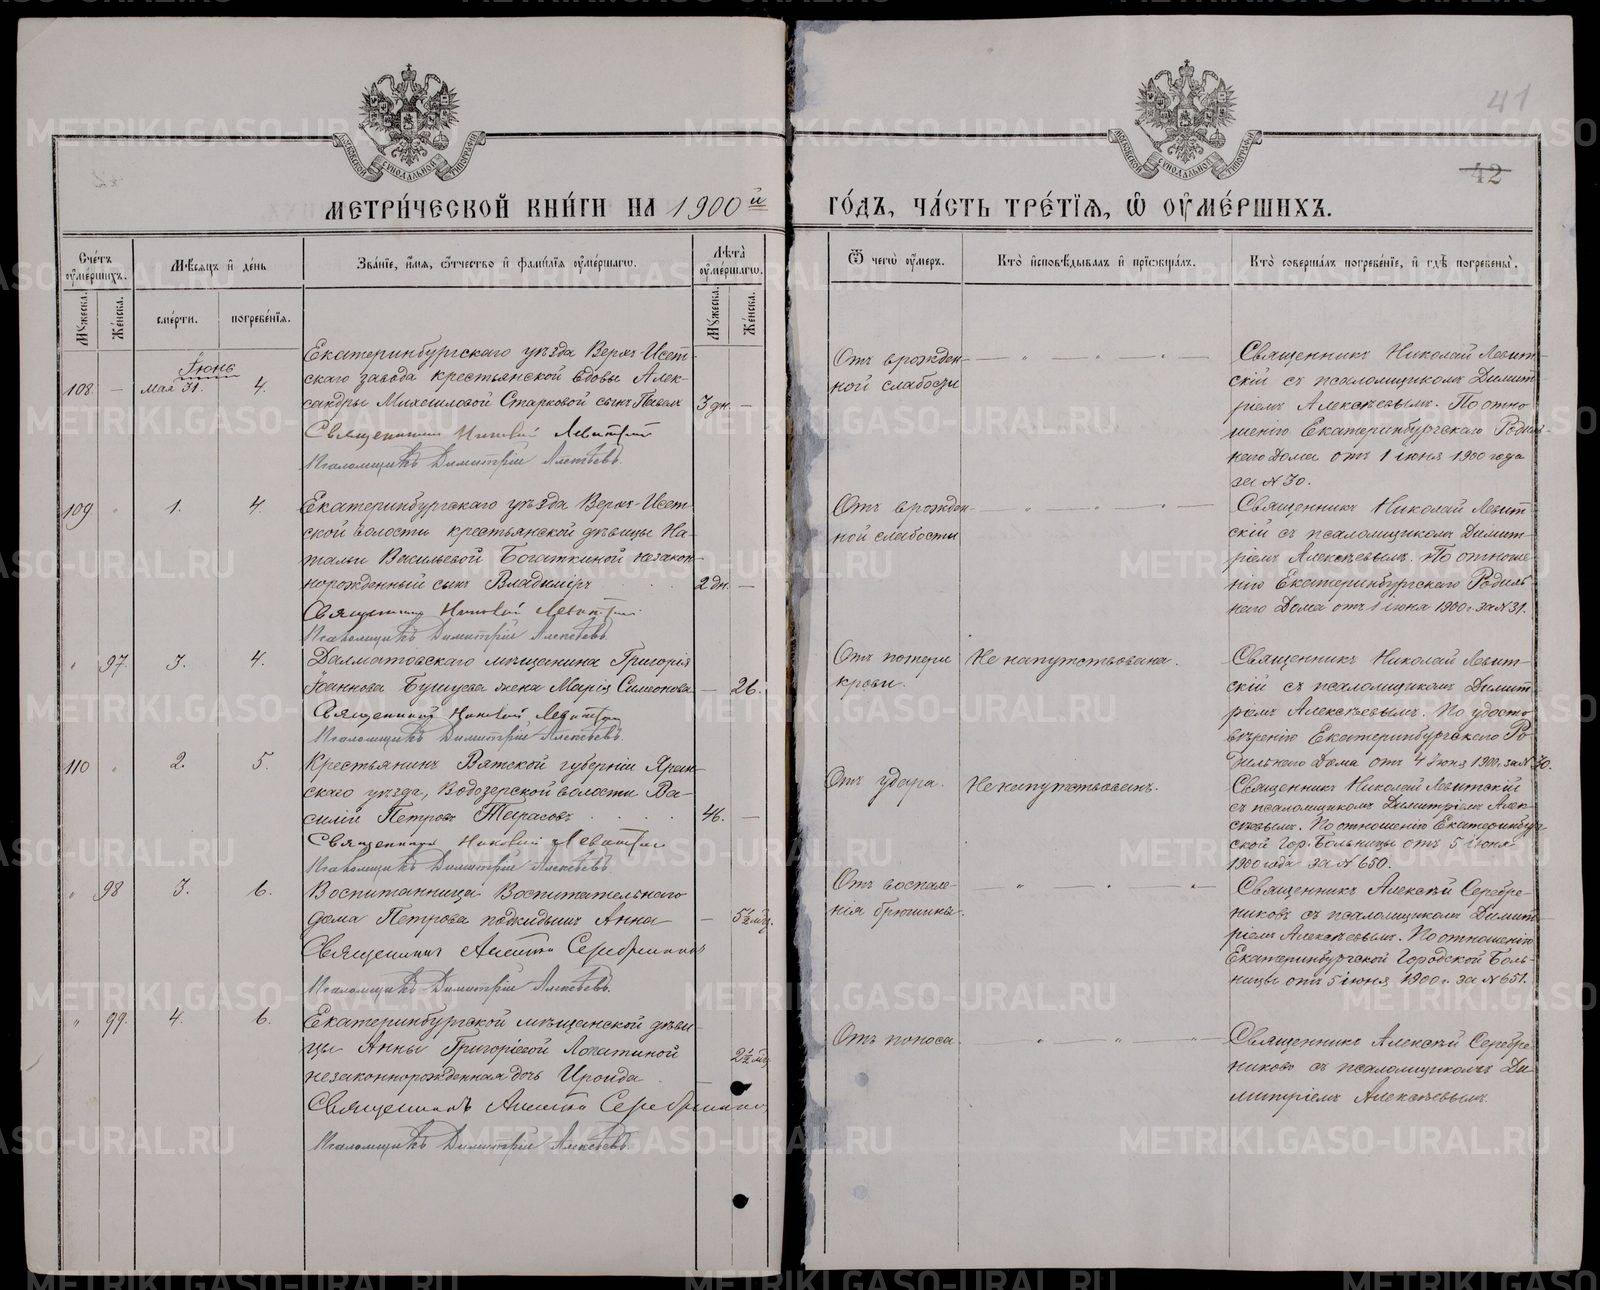 41
42
МЕТРИ́ЧЕСКОЙ КНИ́ГИ НА 1900й
ГО́ДЪ, ЧА́СТЬ ТРЕ́ТІЯ, Ѡ ОУМЕ́РШИХЪ.
Сче́тъ оуме́ршихъ.
Мꙋжеска.
Же́нска.
Мѣсѧцъ и де́нь
сме́рти.
погребе́нїѧ.
Зва́нїе, и́мѧ, ѻ҆́тчество и фами́лїѧ оуме́ршагѡ.
Лѣта̀ оуме́ршагѡ.
Мꙋжеска.
Же́нска.
Ѿ чегѡ̀ оу́меръ.
Кто̀ исповѣ́дывалъ и прїѡбща́лъ.
Кто̀ соверша́лъ погребе́нїе, и гдѣ̀ погребены̀.
Іюнь
108. — мая 31. 4.
Екатеринбургскаго уѣзда Верхъ-Исет-
скаго завода крестьянской вдовы Алек-
сандры Михаиловой Старковой сынъ Павелъ
3 дн. —
Священникъ Николай Левитскій
Псаломщикъ Димитрій Алексѣевъ.
Отъ врожден-
ной слабости
Священникъ Николай Левит-
скій съ псаломщикомъ Димит-
ріемъ Алексѣевымъ. По отно-
шенію Екатеринбургскаго Родиль-
наго Дома отъ 1 іюня 1900 года
за № 30.
109 " 1. 4.
Екатеринбургскаго уѣзда Верхъ-Исет-
ской волости крестьянской дѣвицы На-
тальи Васильевой Богаткиной незакон-
норожденный сынъ Владиміръ
2 дн. —
Священникъ Николай Левитскій
Псаломщикъ Димитрій Алексѣевъ.
Отъ врожден-
ной слабости
Священникъ Николай Левит-
скій съ псаломщикомъ Димит-
ріемъ Алексѣевымъ. По отноше-
нію Екатеринбургскаго Родиль-
наго Дома отъ 1 іюня 1900 г. за № 31.
" 97. 3. 4.
Далматовскаго мѣщанина Григорія
Іоаннова Бушуева жена Марія Симонова
— 26.
Священникъ Николай Левитскій
Псаломщикъ Димитрій Алексѣевъ.
Отъ потери
крови.
Не напутствована.
Священникъ Николай Левит-
скій съ псаломщикомъ Димит-
ріемъ Алексѣевымъ. По удосто-
вѣренію Екатеринбургскаго Ро-
дильнаго Дома отъ 4 іюня 1900 г. за №
110 " 2. 5.
Крестьянинъ Вятской губерніи Яран-
скаго уѣзда, Водозерской волости Ва-
силій Петровъ Тарасовъ
46. —
Священникъ Николай Левитскій
Псаломщикъ Димитрій Алексѣевъ.
Отъ удара.
Не напутствованъ.
Священникъ Николай Левитскій
съ псаломщикомъ Димитріемъ Алек-
сѣевымъ. По отношенію Екатеринбург-
ской Гор. Больницы отъ 5 іюня
1900 года за № 650.
" 98 3. 6.
Воспитанница Воспитательнаго
дома Петрова подкидышъ Анна
— 5½ мѣс.
Священникъ Алексѣй Серебренниковъ
Псаломщикъ Димитрій Алексѣевъ.
Отъ воспале-
нія брюшины.
Священникъ Алексѣй Серебре-
никовъ съ псаломщикомъ Димит-
ріемъ Алексѣевымъ. По отношенію
Екатеринбургской Городской Боль-
ницы отъ 5 іюня 1900 г. за № 651.
" 99. 4. 6.
Екатеринбургской мѣщанской дѣви-
цы Анны Григоріевой Лопатиной
незаконнорожденная дочь Ираида
— 2½ мѣс.
Священникъ Алексѣй Серебренниковъ
Псаломщикъ Димитрій Алексѣевъ.
Отъ поноса.
Священникъ Алексѣй Серебре-
никовъ съ псаломщикомъ Ди-
митріемъ Алексѣевымъ.
METRIKI.GASO-URAL.RU